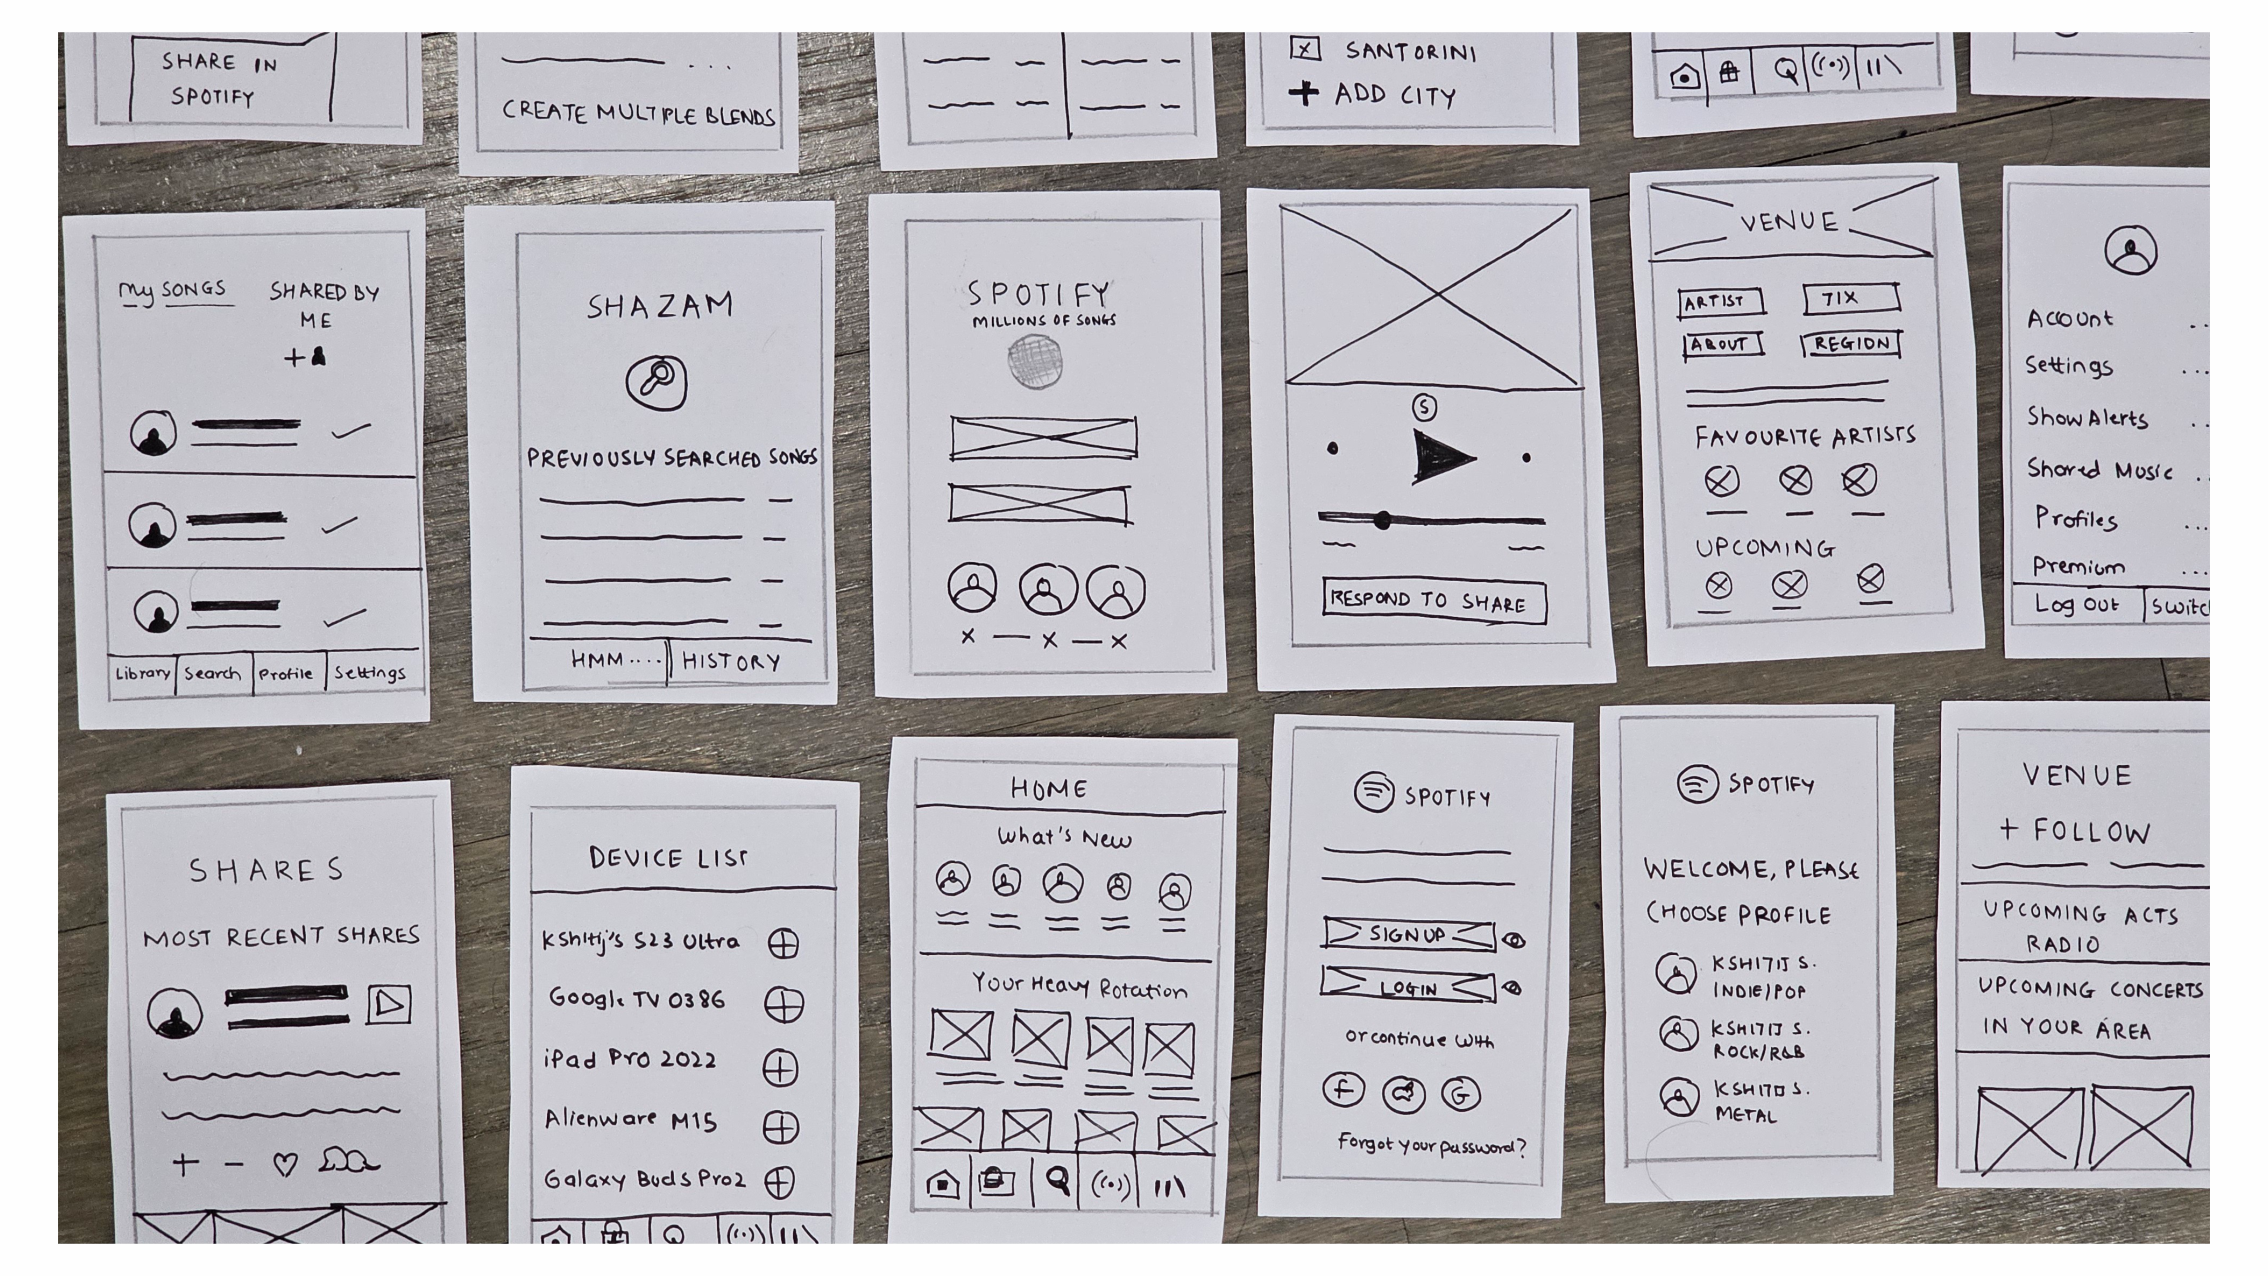 SHARE IN
SPOTIFY
...
CREATE MULTIPLE BLENDS
SANTORINI
+ ADD CITY
My SONGS
SHARED BY
ME
+
Library
Search
Profile
Settings
SHAZAM
PREVIOUSLY SEARCHED SONGS
HMM....
HISTORY
SPOTIFY
MILLIONS OF SONGS
S
RESPOND TO SHARE
VENUE
ARTIST
TIX
ABOUT
REGION
FAVOURITE ARTISTS
UPCOMING
Account ..
Settings ...
Show Alerts ..
Shared Music ..
Profiles ...
Premium ...
Log Out
SHARES
MOST RECENT SHARES
+ -
DEVICE LIST
Kshitij's S23 Ultra
Google TV 0386
iPad Pro 2022
Alienware M15
Galaxy Buds Pro2
HOME
What's New
Your Heavy Rotation
SPOTIFY
SIGN UP
LOGIN
or continue with
f
G
Forgot your password?
SPOTIFY
WELCOME, PLEASE
CHOOSE PROFILE
KSHITIJ S.
INDIE/POP
KSHITIJ S.
ROCK/R&B
KSHITIJ S.
METAL
VENUE
+ FOLLOW
UPCOMING ACTS
RADIO
UPCOMING CONCERTS
IN YOUR AREA